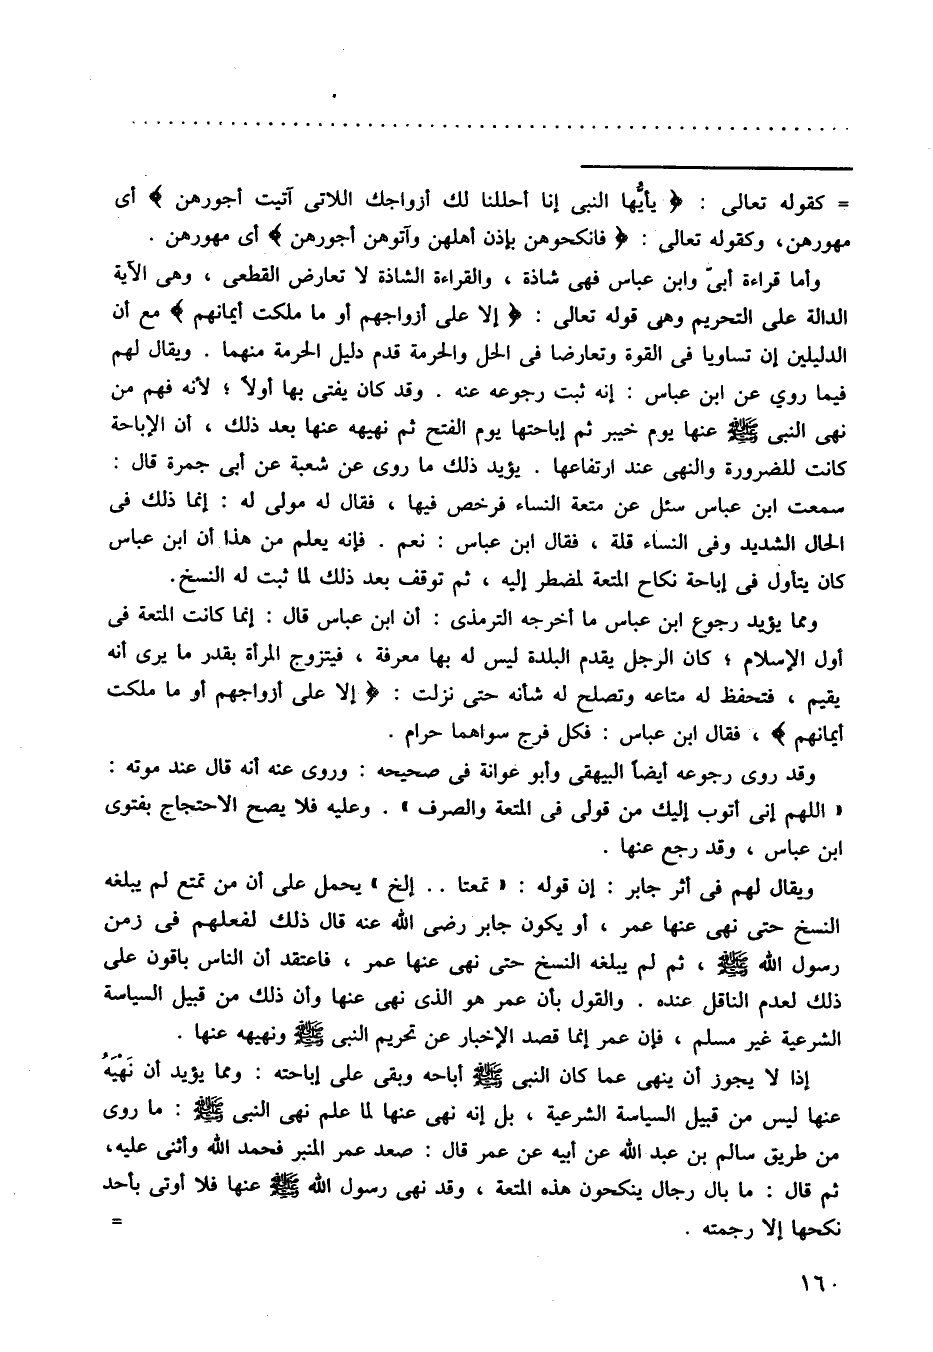 = كقوله تعالى : ﴿ يأيُّها النبى إنا أحللنا لك أزواجك اللاتى آتيت أجورهن ﴾ أى
مهورهن، وكقوله تعالى : ﴿ فانكحوهن بإذن أهلهن وآتوهن أجورهن ﴾ أى مهورهن .
وأما قراءة أبىّ وابن عباس فهى شاذة ، والقراءة الشاذة لا تعارض القطعى ، وهى الآية
الدالة على التحريم وهى قوله تعالى : ﴿ إلا على أزواجهم أو ما ملكت أيمانهم ﴾ مع أن
الدليلين إن تساويا فى القوة وتعارضا فى الحل والحرمة قدم دليل الحرمة منهما . ويقال لهم
فيما روي عن ابن عباس : إنه ثبت رجوعه عنه . وقد كان يفتى بها أولاً ؛ لأنه فهم من
نهى النبى ﷺ عنها يوم خيبر ثم إباحتها يوم الفتح ثم نهيهه عنها بعد ذلك ، أن الإباحة
كانت للضرورة والنهى عند ارتفاعها . يؤيد ذلك ما روى عن شعبة عن أبى جمرة قال :
سمعت ابن عباس سئل عن متعة النساء فرخص فيها ، فقال له مولى له : إنما ذلك فى
الحال الشديد وفى النساء قلة ، فقال ابن عباس : نعم . فإنه يعلم من هذا أن ابن عباس
كان يتأول فى إباحة نكاح المتعة لمضطر إليه ، ثم توقف بعد ذلك لما ثبت له النسخ.
ومما يؤيد رجوع ابن عباس ما أخرجه الترمذى : أن ابن عباس قال : إنما كانت المتعة فى
أول الإسلام ؛ كان الرجل يقدم البلدة ليس له بها معرفة ، فيتزوج المرأة بقدر ما يرى أنه
يقيم ، فتحفظ له متاعه وتصلح له شأنه حتى نزلت : ﴿ إلا على أزواجهم أو ما ملكت
أيمانهم ﴾ ، فقال ابن عباس : فكل فرج سواهما حرام .
وقد روى رجوعه أيضاً البيهقى وأبو عوانة فى صحيحه : وروى عنه أنه قال عند موته :
« اللهم إنى أتوب إليك من قولى فى المتعة والصرف » . وعليه فلا يصح الاحتجاج بفتوى
ابن عباس ، وقد رجع عنها .
ويقال لهم فى أثر جابر : إن قوله : « تمعتا .. إلخ » يحمل على أن من تمتع لم يبلغه
النسخ حتى نهى عنها عمر ، أو يكون جابر رضى الله عنه قال ذلك لفعلهم فى زمن
رسول الله ﷺ ، ثم لم يبلغه النسخ حتى نهى عنها عمر ، فاعتقد أن الناس باقون على
ذلك لعدم الناقل عنده . والقول بأن عمر هو الذى نهى عنها وأن ذلك من قبيل السياسة
الشرعية غير مسلم ، فإن عمر إنما قصد الإخبار عن تحريم النبى ﷺ ونهيهه عنها .
إذا لا يجوز أن ينهى عما كان النبى ﷺ أباحه وبقى على إباحته : ومما يؤيد أن نَهْيَهُ
عنها ليس من قبيل السياسة الشرعية ، بل إنه نهى عنها لما علم نهى النبى ﷺ : ما روى
من طريق سالم بن عبد الله عن أبيه عن عمر قال : صعد عمر المنبر فحمد الله وأثنى عليه،
ثم قال : ما بال رجال ينكحون هذه المتعة ، وقد نهى رسول الله ﷺ عنها فلا أوتى بأحد
نكحها إلا رجمته . =
١٦٠